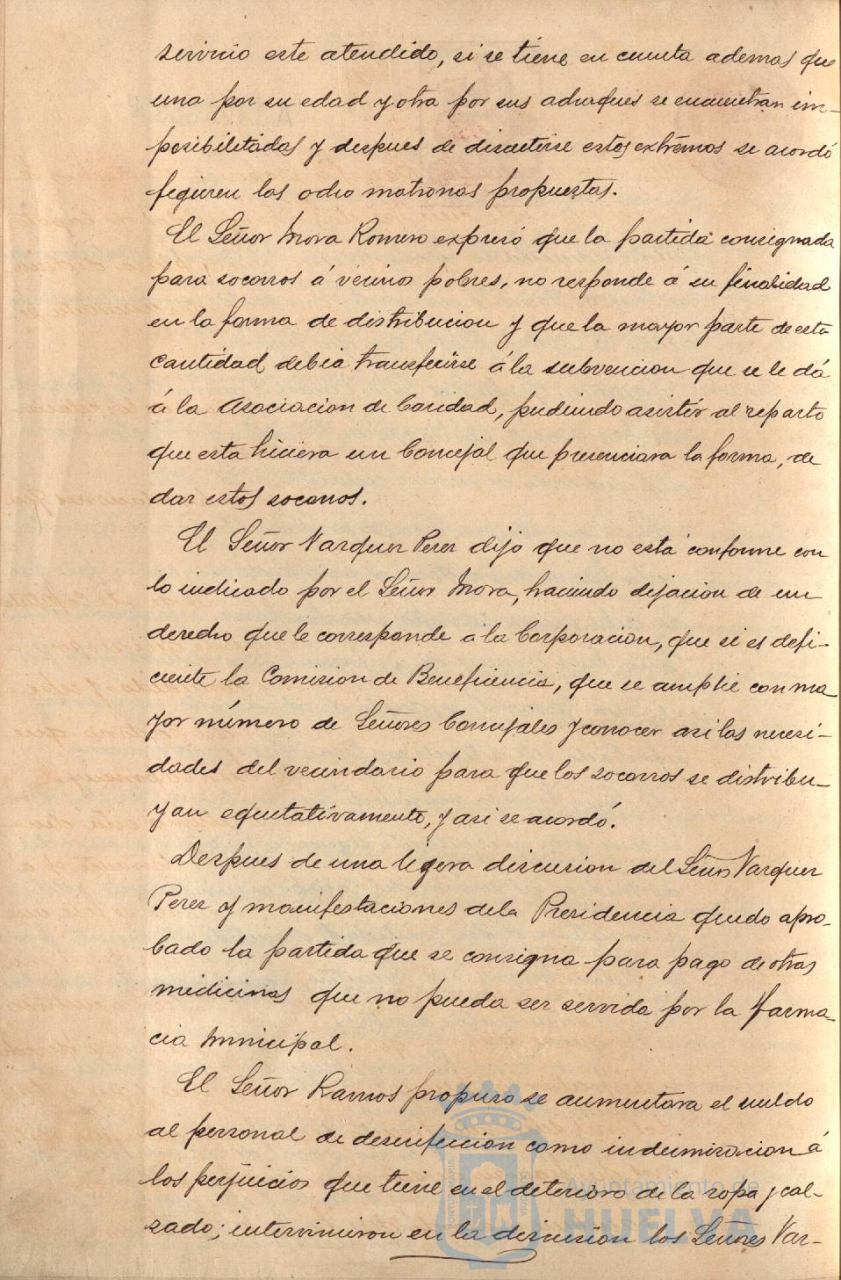 servicio este atendido, si se tiene en cuenta ademas que
una por su edad y otra por sus achaques se encuentran im-
posibilitadas y despues de discutirse estos extremos se acordó
figuren las ocho matronas propuestas.
El Señor Mora Romero expresó que la partida consignada
para socorros á vecinos pobres, no responde á su finalidad
en la forma de distribucion y que la mayor parte de esta
cantidad debia transferirse á la subvencion que se le dá
á la Asociacion de Caridad, pudiendo asistir al reparto
que esta hiciera un Concejal que presenciara la forma, de
dar estos socorros.
El Señor Vazquez Perez dijo que no está conforme con
lo indicado por el Señor Mora, haciendo dejacion de un
derecho que le corresponde á la Corporacion, que si es defi-
ciente la Comision de Beneficencia, que se amplie con ma
yor número de Señores Concejales y conocer asi las necesi-
dades del vecindario para que los socorros se distribu-
yan equitativamente, y asi se acordó.
Despues de una ligera discusion del Señor Vazquez
Perez y manifestaciones de la Presidencia quedo apro-
bado la partida que se consigna para pago de otras
medicinas que no pueda ser servida por la farma-
cia Municipal.
El Señor Ramos propuso se aumentara el sueldo
al personal de desinfeccion como indemnizacion á
los perjuicios que tiene en el deterioro de la ropa y cal-
zado; intervinieron en la discusion los Señores Vaz-
Ayuntamiento de
HUELVA